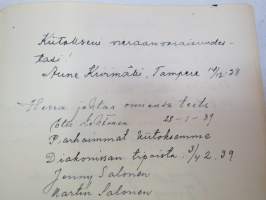 Kiitoksens vieraanvaraisuudes-
tasi!
Aune Kivimäki, Tampere 14/2.38
Herra johtaa omiansa teitä
Elli Lehtonen 28-1-39
Parhaimmat kiitoksemme
Diakonissan tiposta 3/4 2.39
Jenny Salonen
Martin Salonen